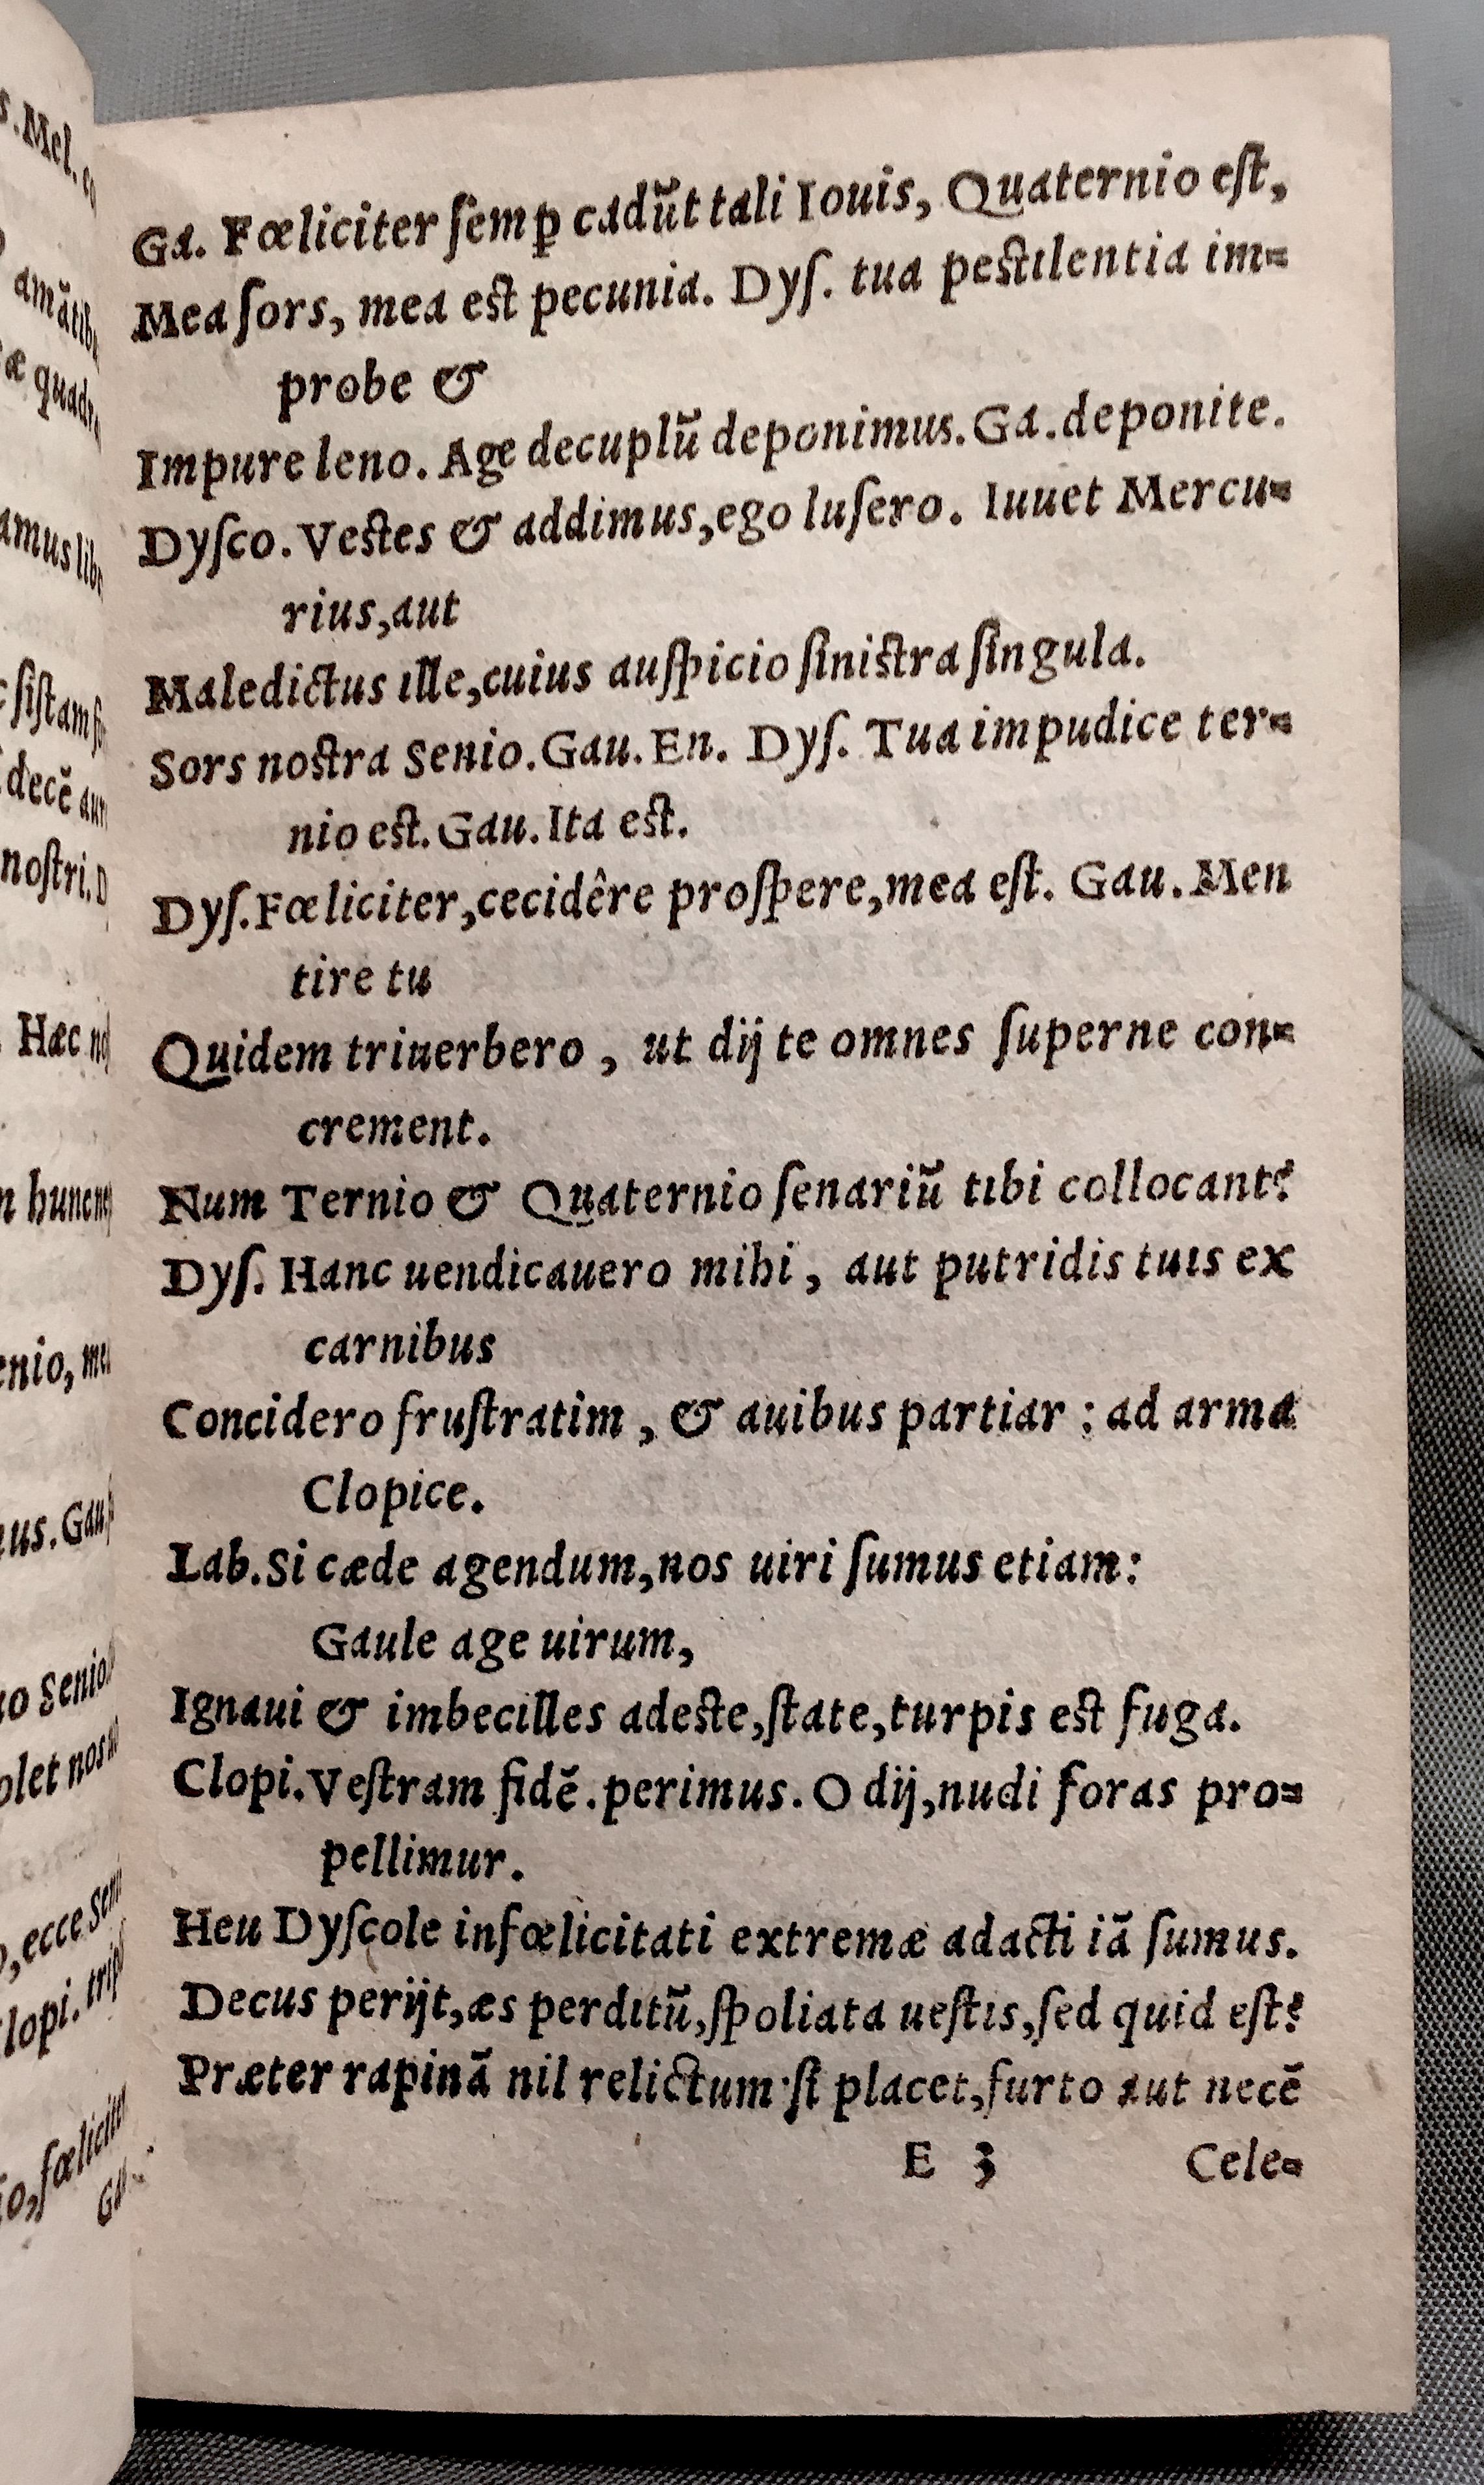 Ga. Fœliciter ſemꝑ cadũt tali Iouis, Quaternio eſt,
Mea ſors, mea est pecunia. Dyſ. tua pestilentia im=
probe &
Impure leno. Age decuplũ deponimus. Ga. deponite.
Dyſco. Vestes & addimus, ego luſero. Iuuet Mercu=
rius, aut
Maledictus ille, cuius auſpicio ſinistra ſingula.
Sors nostra Senio. Gau. En. Dyſ. Tua impudice ter=
nio est. Gau. Ita est.
Dyſ. Fœliciter, cecidêre proſpere, mea eſt. Gau. Men
tire tu
Quidem triuerbero, ut dij te omnes ſuperne con=
crement.
Num Ternio & Quaternio ſenariũ tibi collocant?
Dyſ. Hanc uendicauero mihi, aut putridis tuis ex
carnibus
Concidero fruſtratim, & auibus partiar : ad arma
Clopice.
Lab. Si cæde agendum, nos uiri ſumus etiam:
Gaule age uirum,
Ignaui & imbecilles adeste, ſtate, turpis est fuga.
Clopi. Veſtram fidẽ. perimus. O dij, nudi foras pro=
pellimur.
Heu Dyſcole infœlicitati extremæ adacti iã ſumus.
Decus perijt, æs perditũ, ſpoliata ueſtis, ſed quid eſt?
Præter rapinã nil relictum·ſi placet, furto aut necẽ
E 3 Cele=